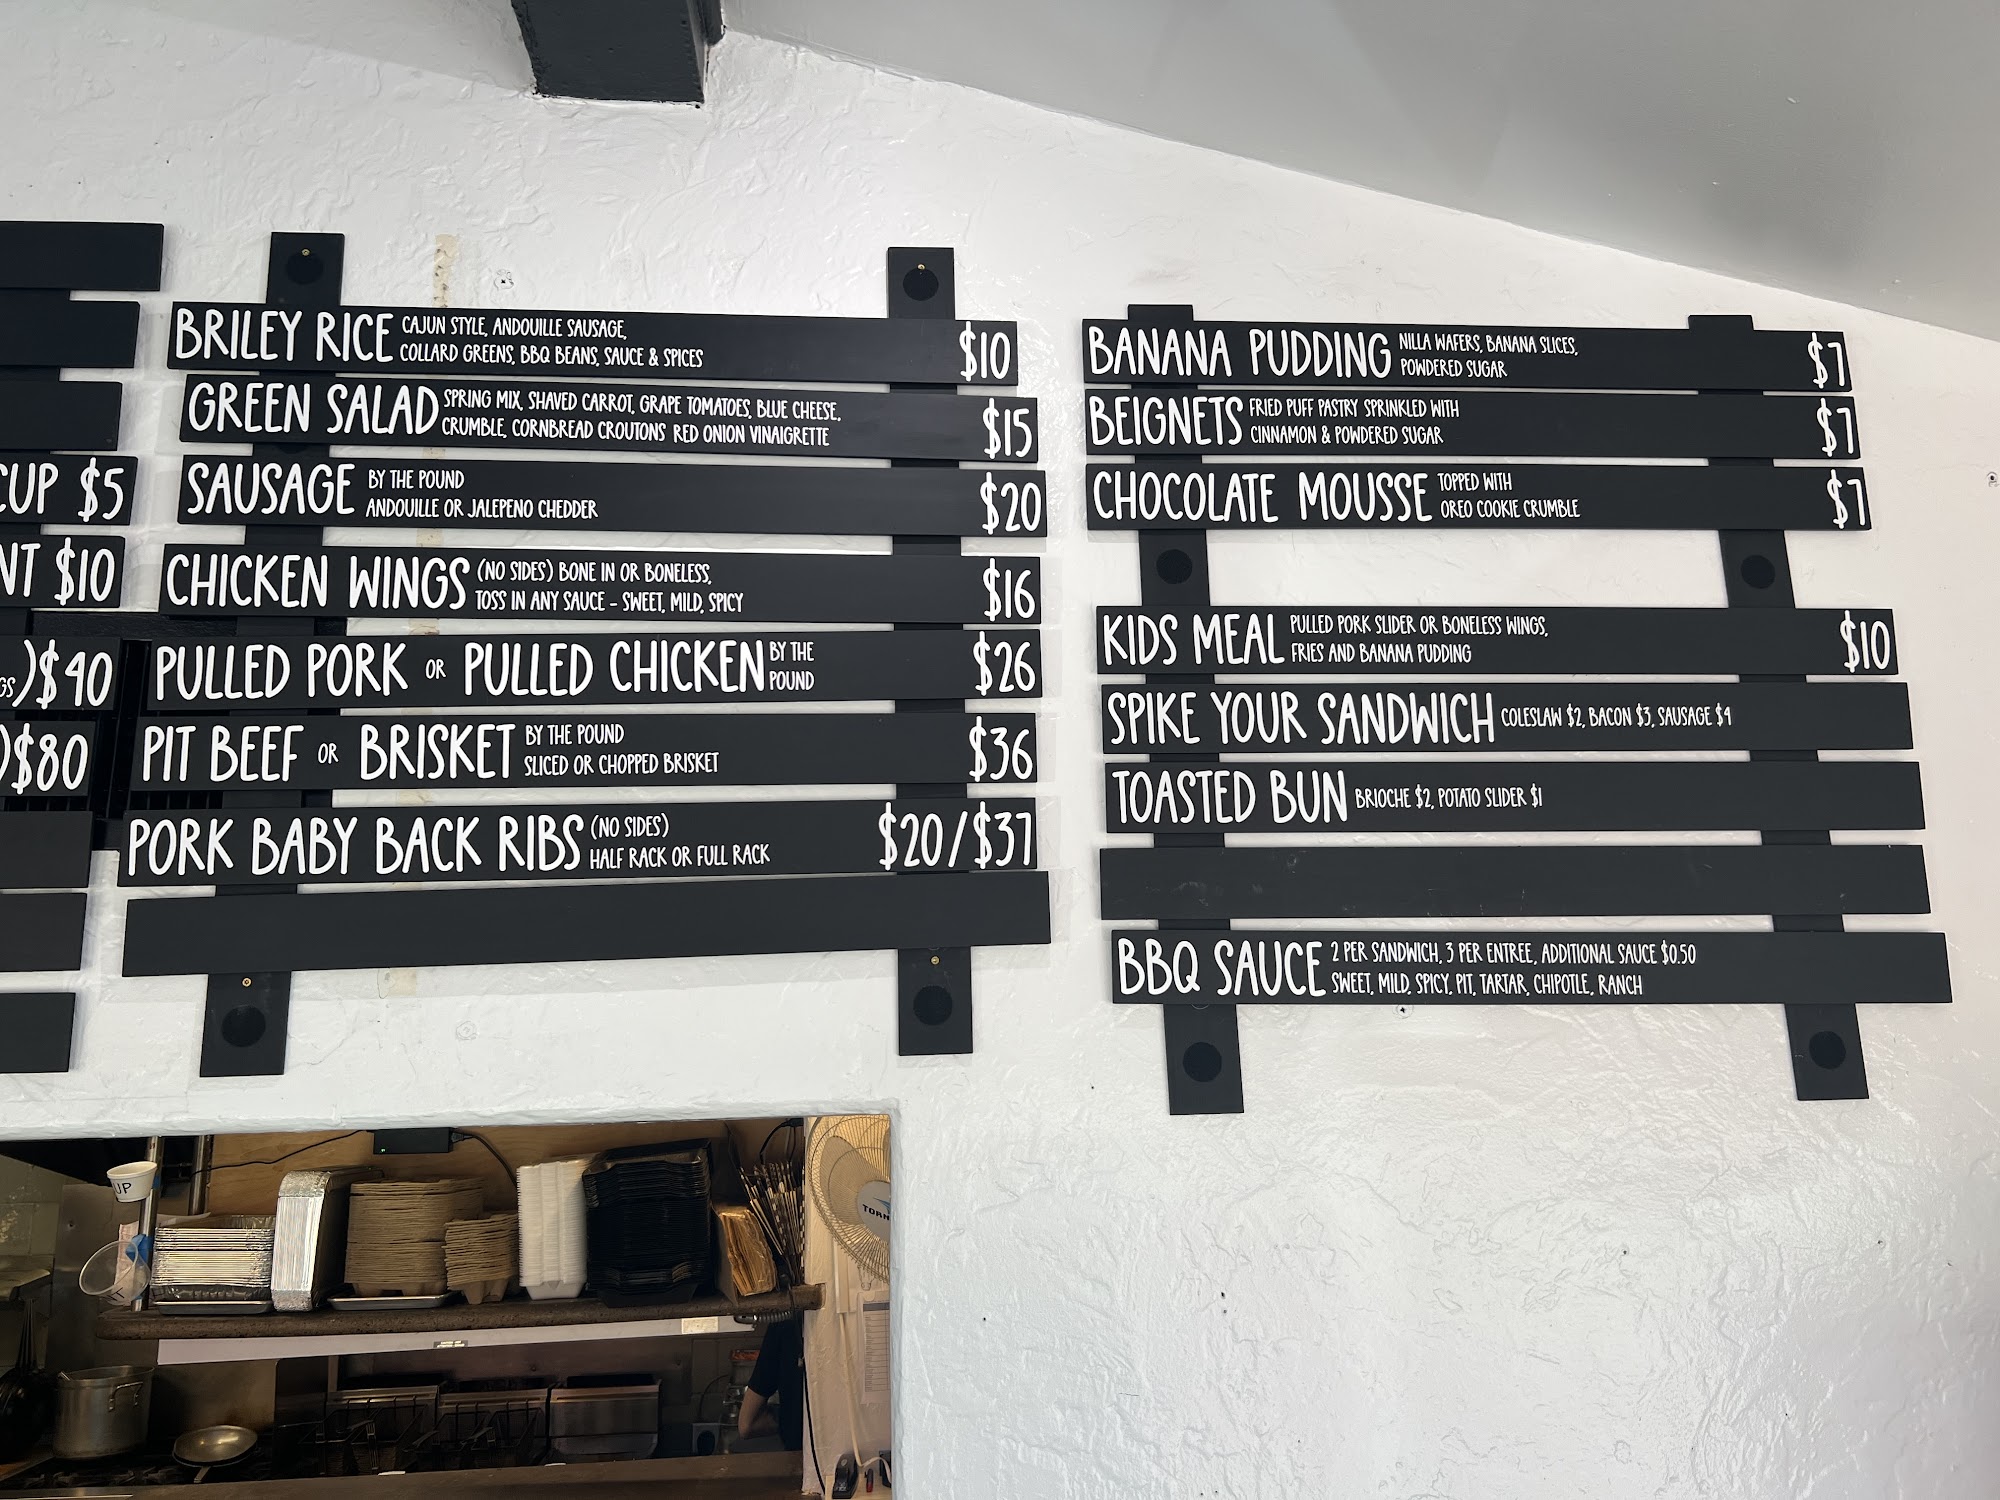 CUP $5
NT $10
GS)$40
)$80
BRILEY RICE CAJUN STYLE, ANDOUILLE SAUSAGE,
COLLARD GREENS, BBQ BEANS, SAUCE & SPICES
$10
GREEN SALAD SPRING MIX, SHAVED CARROT, GRAPE TOMATOES, BLUE CHEESE,
CRUMBLE, CORNBREAD CROUTONS RED ONION VINAIGRETTE
$15
SAUSAGE BY THE POUND
ANDOUILLE OR JALEPENO CHEDDER
$20
CHICKEN WINGS (NO SIDES) BONE IN OR BONELESS,
TOSS IN ANY SAUCE - SWEET, MILD, SPICY
$16
PULLED PORK OR PULLED CHICKEN BY THE
POUND
$26
PIT BEEF OR BRISKET BY THE POUND
SLICED OR CHOPPED BRISKET
$36
PORK BABY BACK RIBS (NO SIDES)
HALF RACK OR FULL RACK
$20/$37
BANANA PUDDING NILLA WAFERS, BANANA SLICES,
POWDERED SUGAR
$7
BEIGNETS FRIED PUFF PASTRY SPRINKLED WITH
CINNAMON & POWDERED SUGAR
$7
CHOCOLATE MOUSSE TOPPED WITH
OREO COOKIE CRUMBLE
$7
KIDS MEAL PULLED PORK SLIDER OR BONELESS WINGS,
FRIES AND BANANA PUDDING
$10
SPIKE YOUR SANDWICH COLESLAW $2, BACON $3, SAUSAGE $4
TOASTED BUN BRIOCHE $2, POTATO SLIDER $1
BBQ SAUCE 2 PER SANDWICH, 3 PER ENTREE, ADDITIONAL SAUCE $0.50
SWEET, MILD, SPICY, PIT, TARTAR, CHIPOTLE, RANCH
UP
TORN